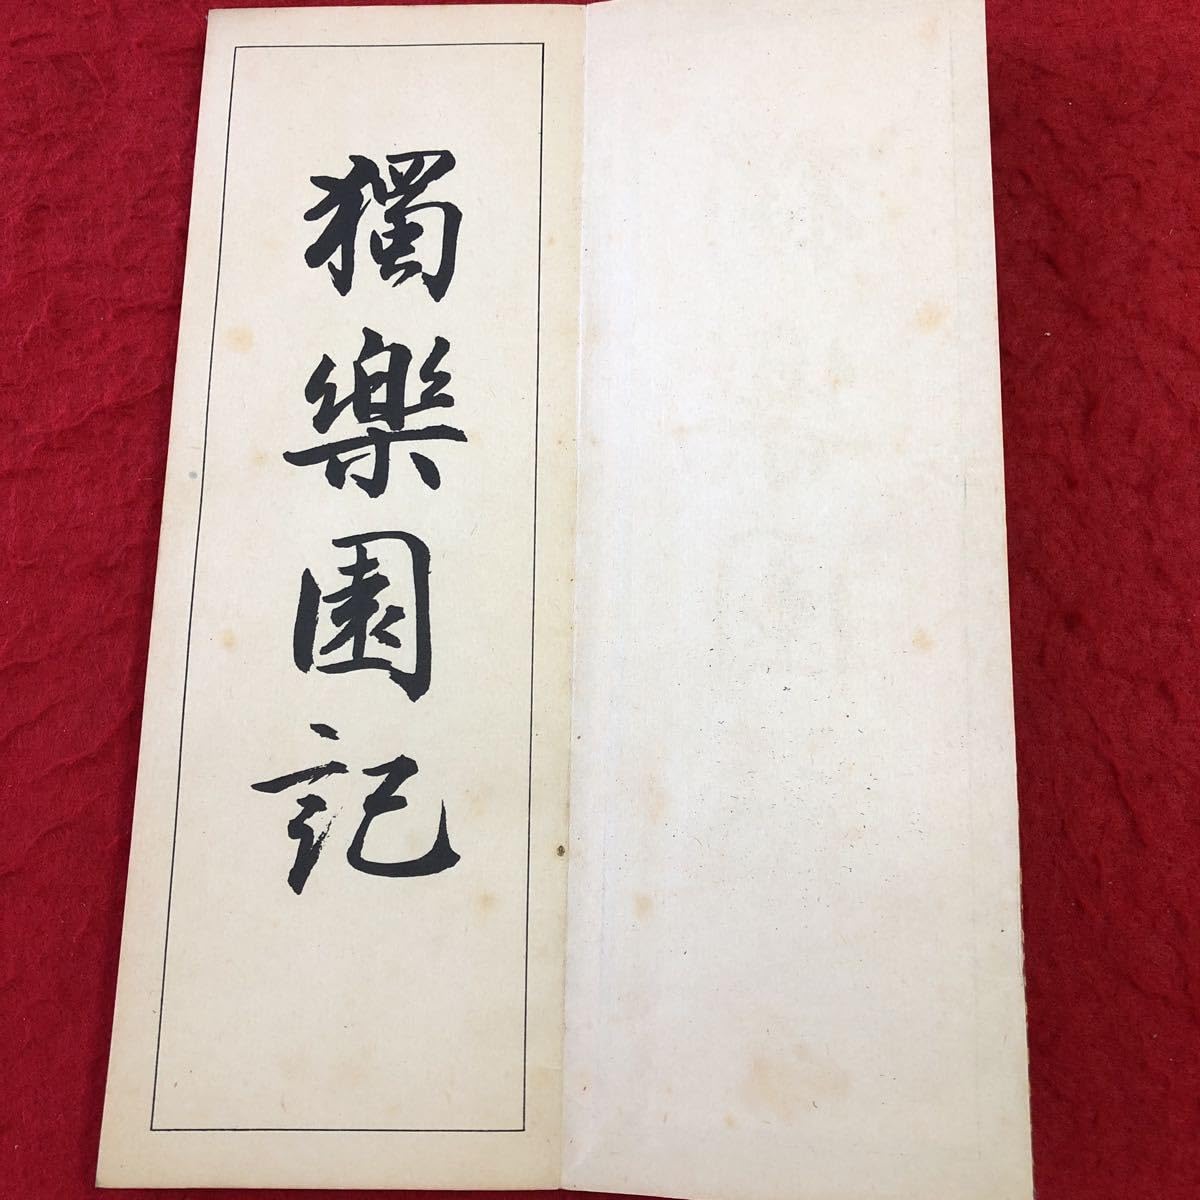 獨樂園記